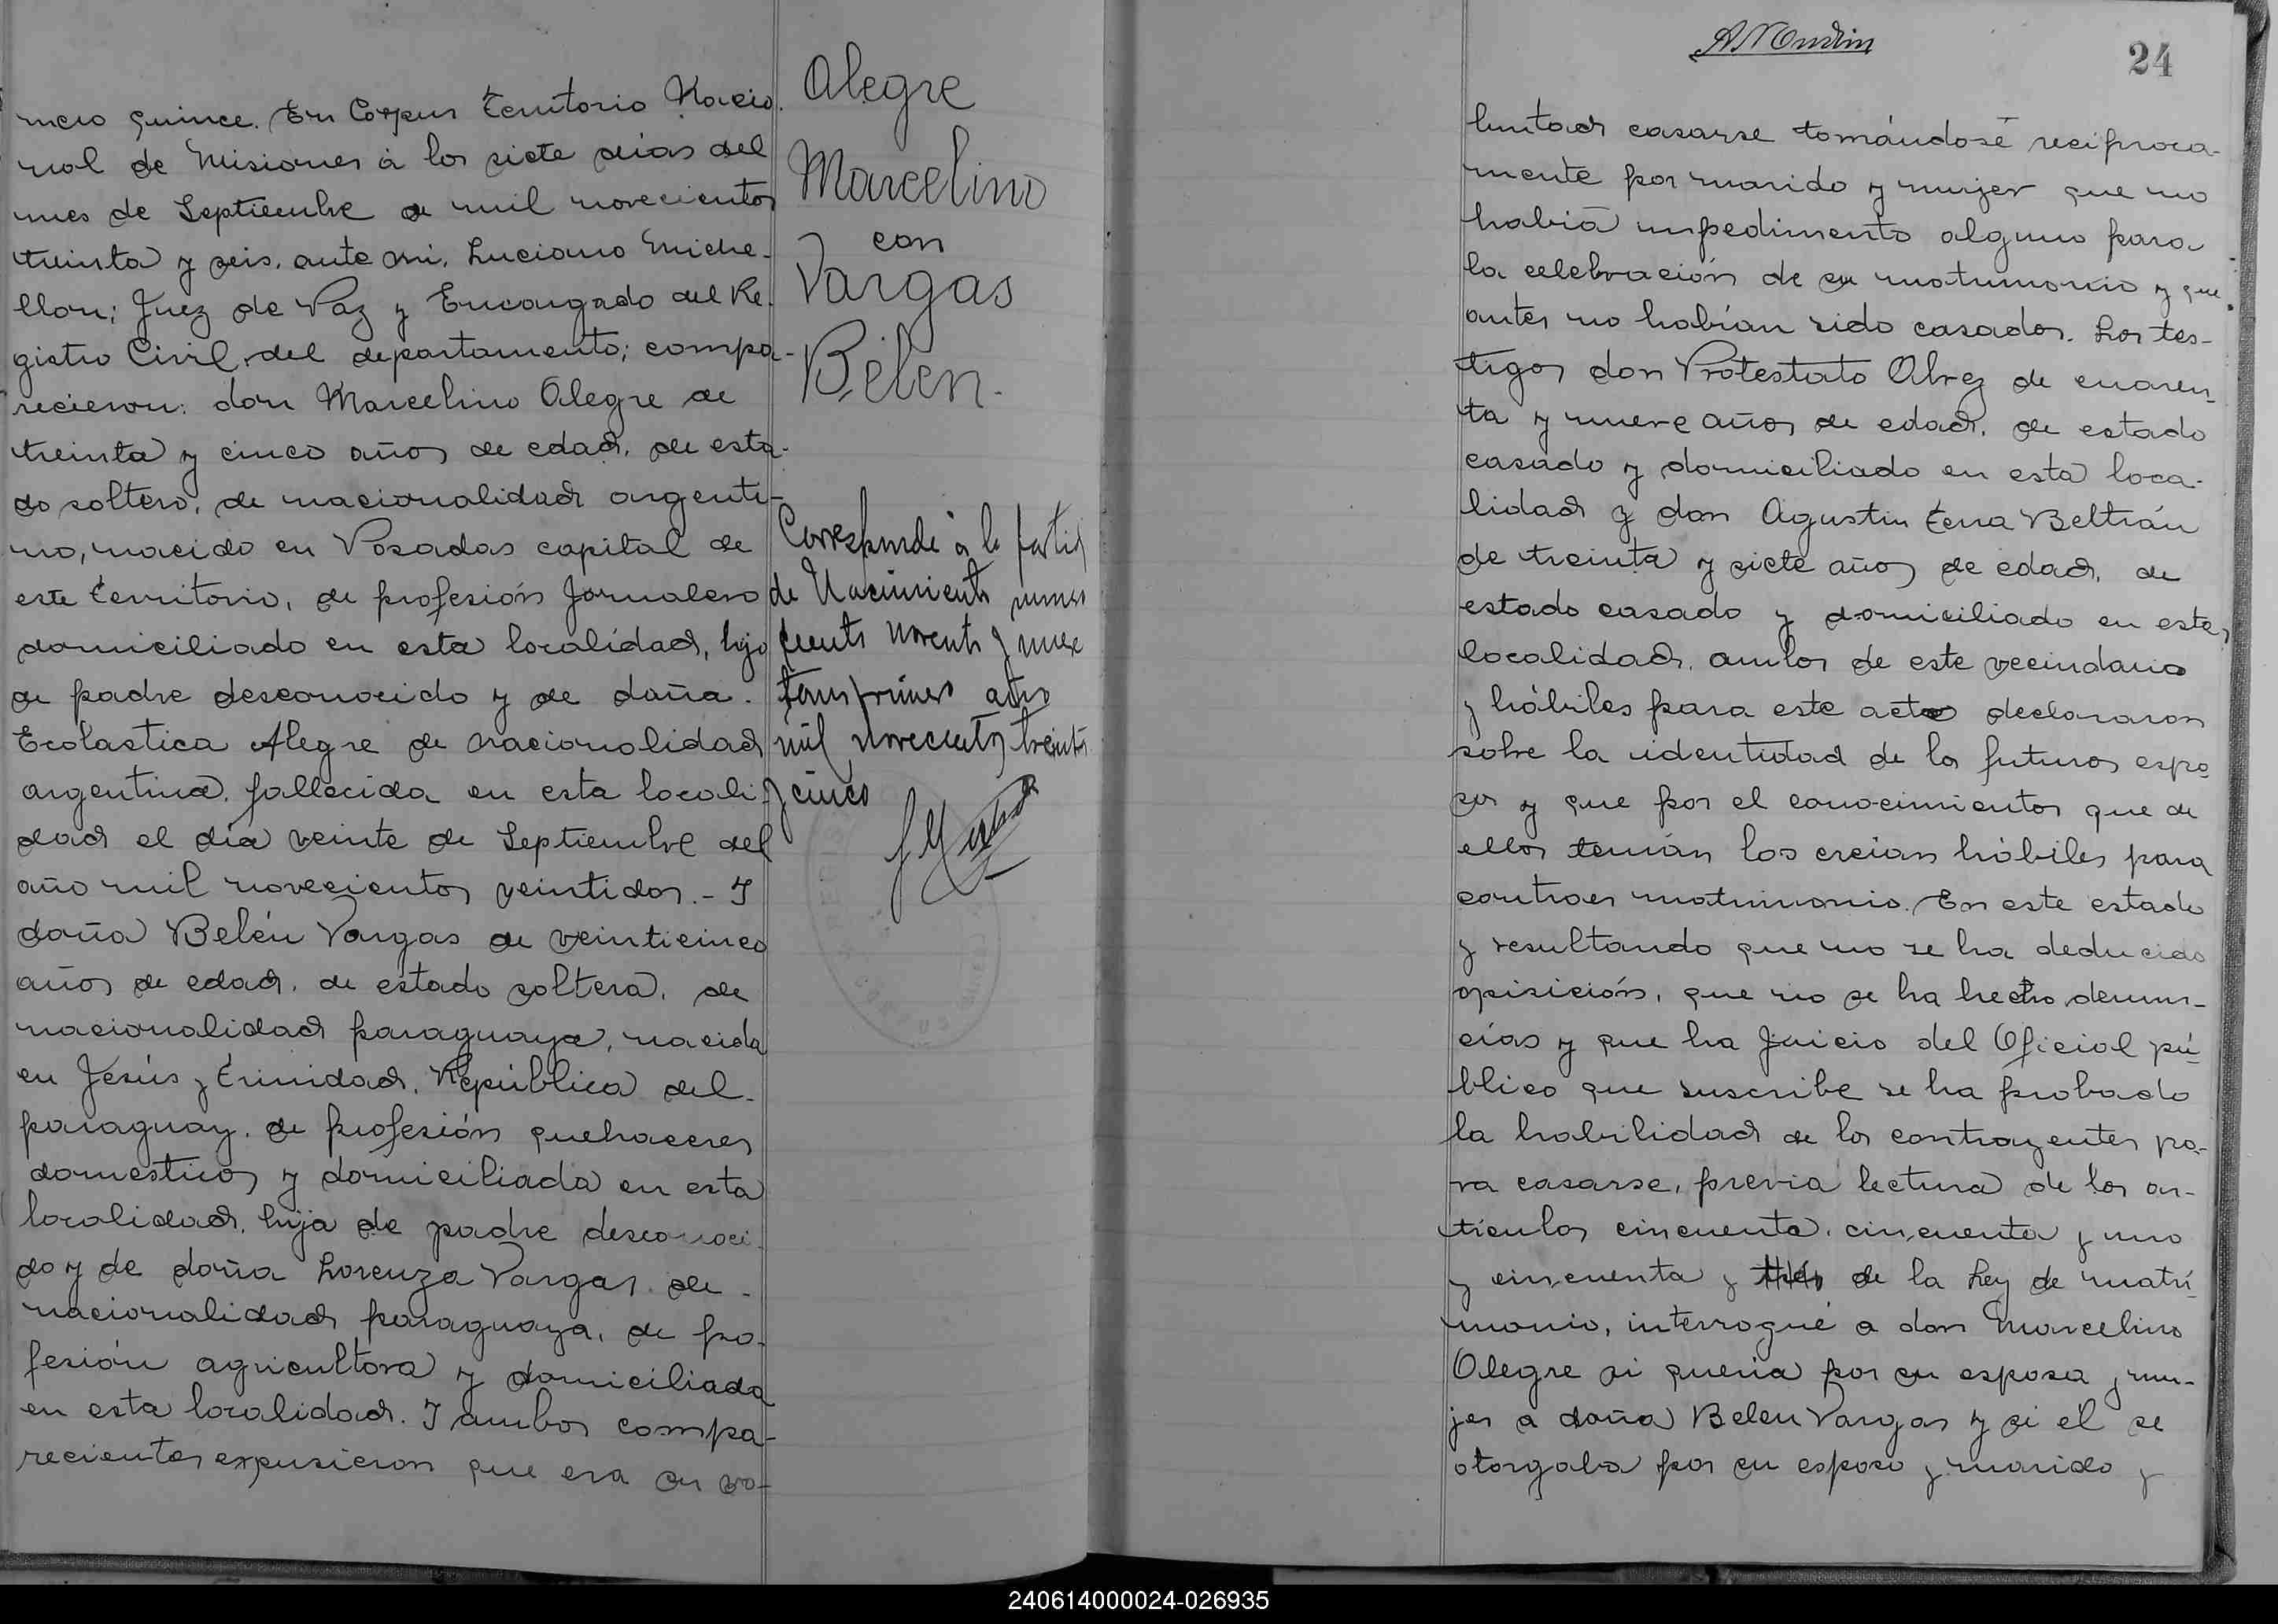 mero quince. En Corpus Territorio Nacio.
nal de Misiones á los siete dias del
mes de Septiembre de mil novecientos
treinta y seis, ante mi, Luciano Miche-
llon; Juez de Paz y Encargado del Re-
gistro Civil, del departamento; compa-
recieron: don Marcelino Alegre de
treinta y cinco años de edad, de esta-
do soltero, de nacionalidad argenti-
no, nacido en Posadas capital de
este territorio, de profesión Jornalero
domiciliado en esta localidad, hijo
de padre desconocido y de doña.
Ecolastica Alegre de nacionalidad
argentina, fallecida en esta locali-
dad el día veinte de Septiembre del
año mil novecientos veintidos.- Y
doña Belén Vargas de veinticinco
años de edad, de estado soltera, de
nacionalidad paraguaya, nacida
en Jesús y Trinidad, República del
paraguay, de profesión quehaceres
domesticos y domiciliada en esta
localidad, hija de padre desconoci-
do y de doña Lorenza Vargas, de
nacionalidad paraguaya, de pro-
fesión agricultora y domiciliada
en esta localidad. Y ambos compa-
recientes expusieron que era su vo-
Alegre
Marcelino
con
Vargas
Belen.
Corresponde á la partid
de Nacimiento numero
ciento noventa y nueve
tomo primero año
mil novecientos treinta
y cinco
24
luntad casarse tomándosé recíproca-
mente por marido y mujer que no
había impedimento alguno para
la celebración de su matrimonio y que
antes no habían sido casados. Los tes-
tigos don Protestato Alvez de cuaren-
ta y nueve años de edad, de estado
casado y domiciliado en esta loca-
lidad y don Agustin Terra Beltrán
de treinta y siete años de edad, de
estado casado y domiciliado en esta
localidad, ambos de este vecindario
y hábiles para este acto declararon
sobre la identidad de los futuros espo
sos y que por el conocimientos que de
ellos tenián los creían hábiles para
contraer matrimonio. En este estado
y resultando que no se ha deducido
opisición, que no se ha hecho denun-
cias y que ha Juicio del Oficial pú-
blico que suscribe se ha probado
la habilidad de los contrayentes pa-
ra casarse, previa lectura de los ar-
tículos cincuenta, cincuenta y uno
y cincuenta y trés de la Ley de matri
monio, interrogué a don Marcelino
Alegre si queria por su esposa y mu-
jer a doña Belen Vargas y si él se
otorgaba por su esposo y marido y
240614000024-026935